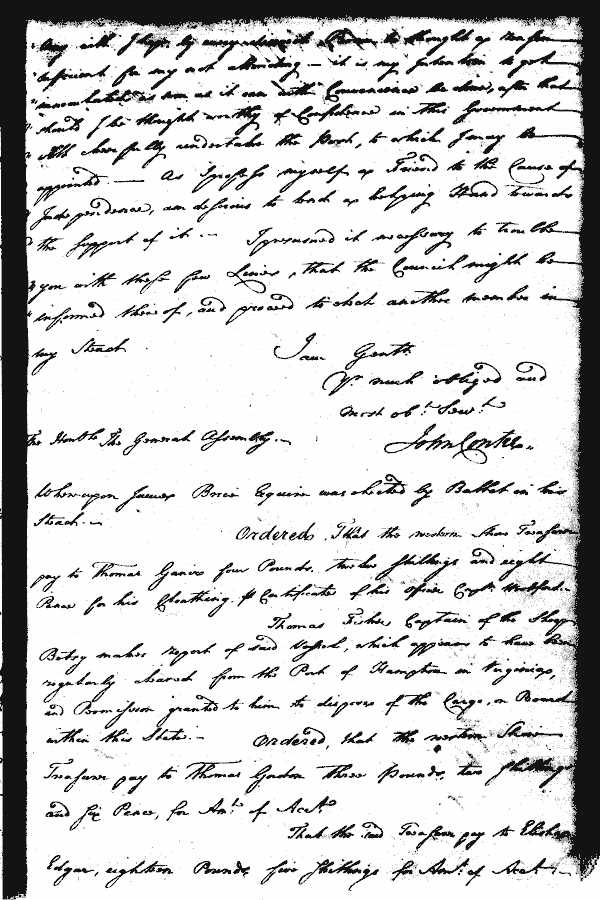 any ill I hope by unprejudiced Person be thought a reason
sufficient for my not attending — it is my Intention to get
"innoculated as soon as it can with Convenience be done, after that
"should I be thought worthy of Confidence in this Government
"Will chearfully undertake the Work, to which I may be
appointed. — As I profess myself a Friend to the Cause of
Independence, am desirous to lend a helping Hand towards
the support of it. — I presumed it necessary to trouble
"you with these few Lines, that the Council might be
"informed thereof, and proceed to elect another member in
my Stead
I am Gentn
Yr much obliged and
most obt Servt
The Honble The General Assembly. —
John Contee.
Whereupon James Brice Esquire was elected by Ballot in his
Stead. —
Ordered, That the western Shore Treasurer
pay to Thomas four Pounds, twelve Shillings and eight
Pence for his Cloathing, Certificate of his officer Capt.
Thomas Fisher Captain of the Sloop
Betsy makes report of said Vessel, which appears to have been
regularly cleared from the Port of Hampton in Virginia,
and Permission granted to him to dispose of the Cargo, on Board
within this State. — Ordered, that the western Shore
Treasurer pay to Thomas Gordon three Pounds, two Shillings
and Six Pence, for Amt. of Acct.
That the said Treasurer pay to Elisha
Edgar, eighteen Pounds five Shillings for Amt. of Acct. —